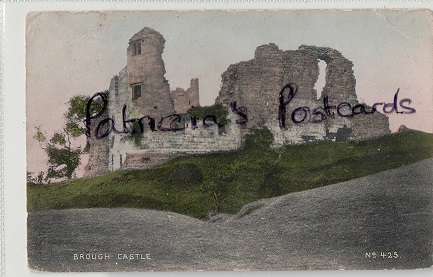 Patricia's Postcards
BROUGH CASTLE
Nº 425